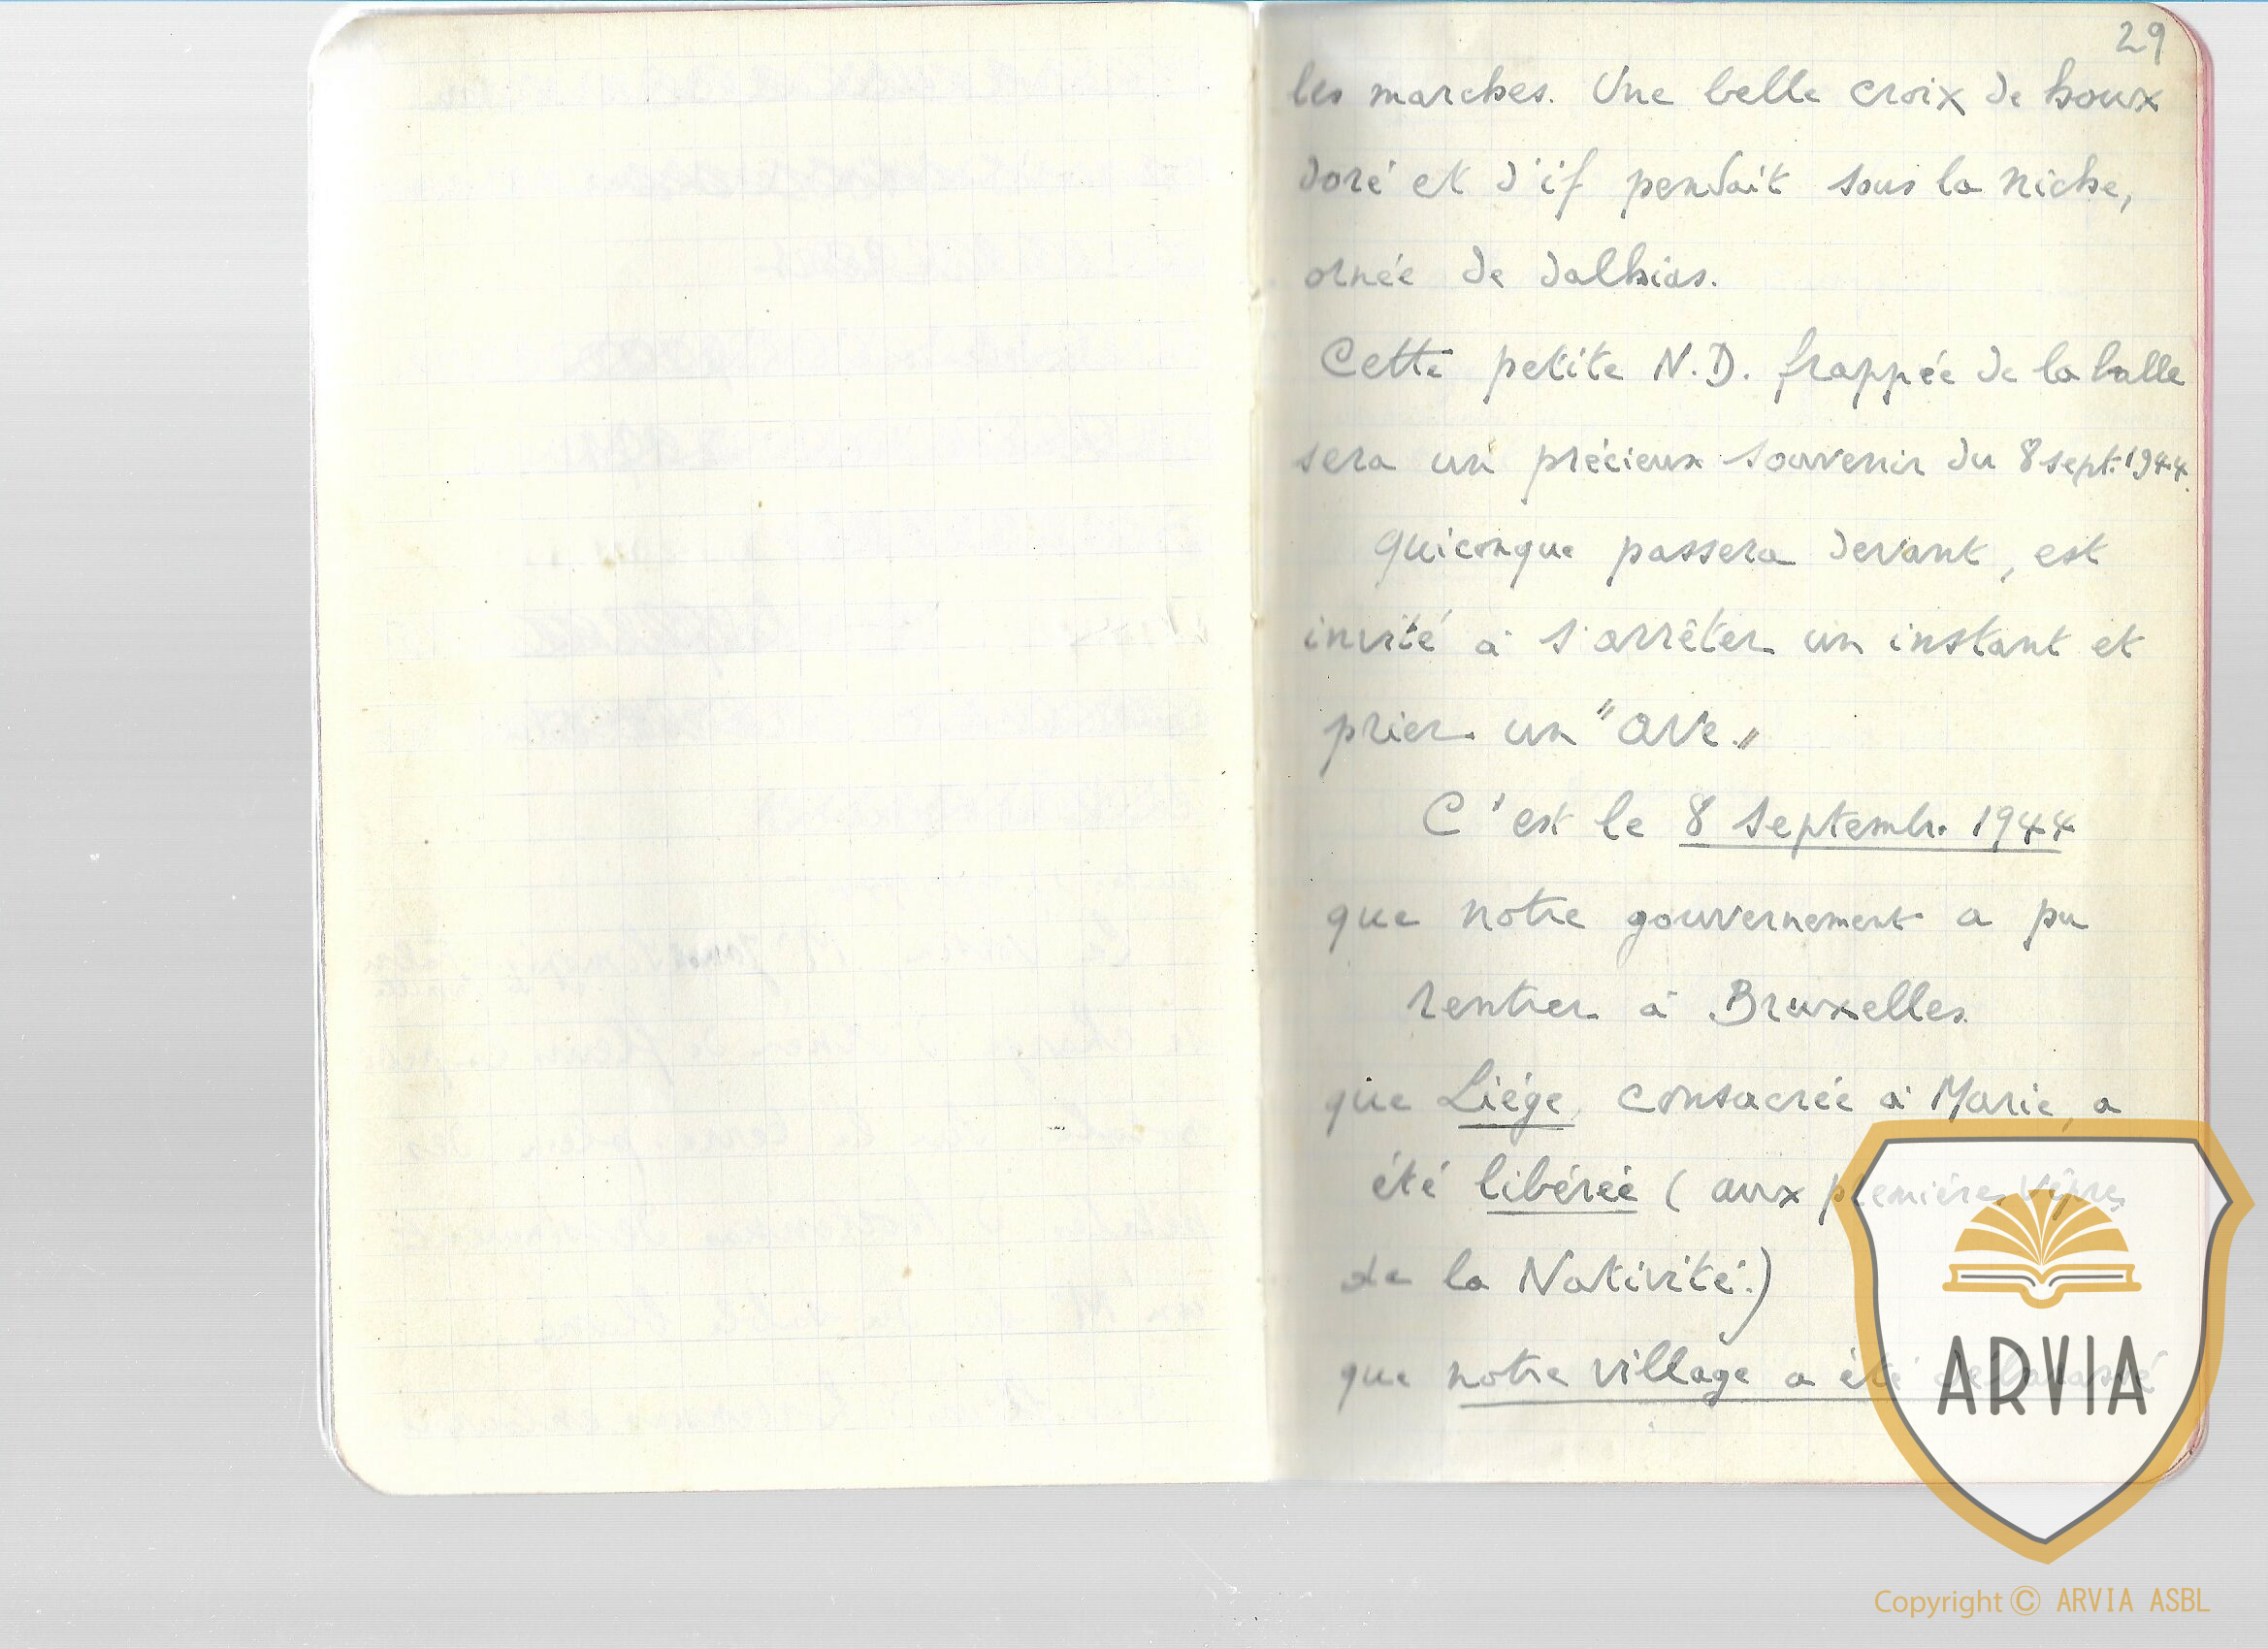 29
les marches. Une belle croix de houx
doré et d'if pendait sous la niche,
ornée de dalhias.
Cette petite N.D. frappée de la balle
sera un précieux souvenir du 8 sept. 1944.
Quiconque passera devant, est
invité à s'arrêter un instant et
prier un "ave."
C'est le 8 septembr. 1944
que notre gouvernement a pu
rentrer à Bruxelles.
que Liége, consacrée à Marie, a
été libérée (aux premières Vêpres
de la Nativité.)
que notre village a été
ARVIA
Copyright © ARVIA ASBL